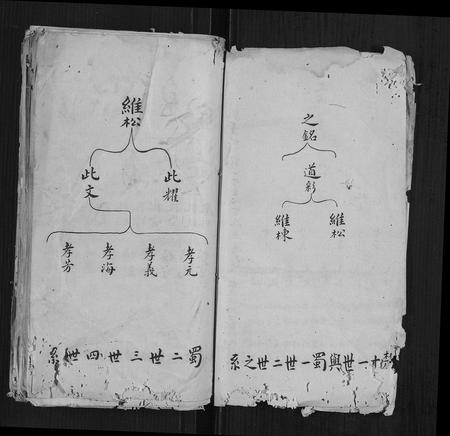 之銘
道彰
維松
維棟
十一世與蜀一世二世之系
維松
此耀
此文
孝元
孝義
孝海
孝芳
蜀二世三世四世系